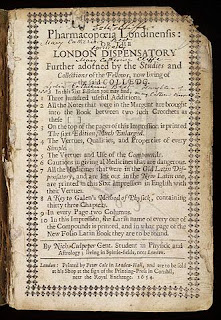 Pharmacopœia Londinensis:
OR THE
LONDON DISPENSATORY
Further adorned by the Studies and
Collections of the Fellows, now living of
the said COLLEDG.
In this Six Edition you may find,
1 Three hundred useful Additions.
2 All the Notes that were in the Margent are brought
into the Book between two such Crotchets as
these [ ]
3 On the top of the pages of this Impression is printed
The sixt Edition, Much Enlarged.
4 The Vertues, Qualities, and Properties of every
Simple.
5 The Vertues and Use of the Compounds.
6 Cautions in giving al Medicines that are dangerous.
7 All the Medicines that were in the Old Latin Dis-
pensatory, and are left out in the New Latin one,
are printed in this Sixt Impression in English with
their Vertues.
8 A Key to Galen's Method of Physick, containing
thirty three Chapters.
9 In every Page two Columns.
10 In this Impression, the Latin name of every one of
the Compounds is printed, and in what page of the
New Folio Latin Book they are to be found.
By Nich. Culpeper Gent. Student in Physick and
Astrology; living in Spittle-fields, neer London.
London: Printed by Peter Cole in Leaden-Hall, and are to be sold
at his Shop at the sign of the Printing-Press in Cornhil,
neer the Royal Exchange. 1654.